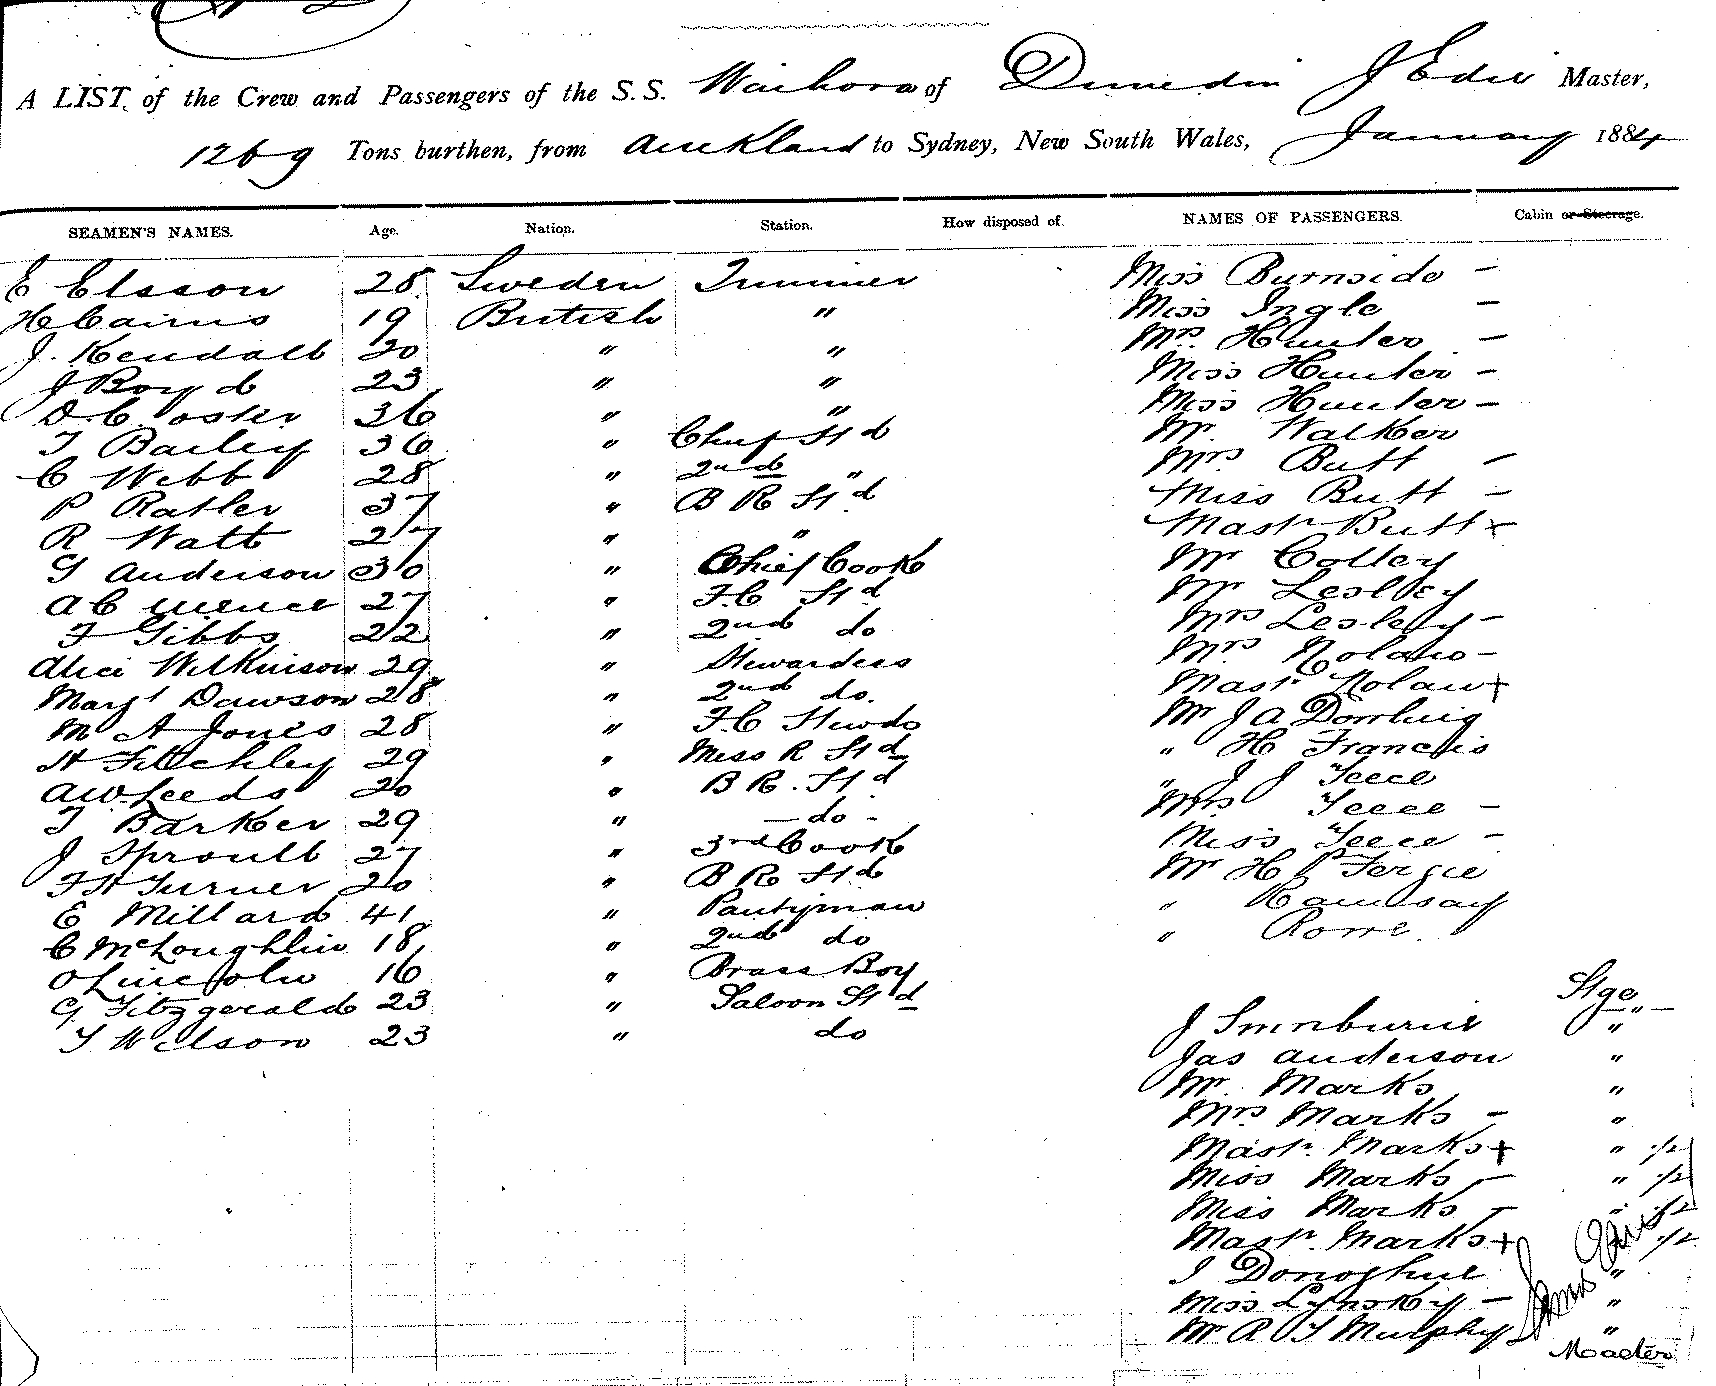 A LIST of the Crew and Passengers of the S.S. Waihora of Dunedin J Edie Master,
1269 Tons burthen, from Auckland to Sydney, New South Wales, January 1884
SEAMEN'S NAMES. Age. Nation. Station. How disposed of. NAMES OF PASSENGERS. Cabin or Steerage.
E Elsson 28 Sweden Trimmer Miss Burnside -
H Cairns 19 British " Miss Ingle -
J. Kendall 20 " " Mrs Hunter -
J Boyd 23 " " Miss Hunter -
D. C. oster 36 " " Miss Hunter -
T Bailey 36 " Chief Std Mr Walker
C Webb 28 " 2nd " Mrs Butt -
P Ratler 37 " B R Std Miss Butt -
R Watt 27 " " Mastr Butt x
G Anderson 30 " Chief Cook Mr Colley
A C 27 " F.C Std Mr Lesley
F Gibbs 22 " 2nd do Mrs Lesley -
Alice Wilkinson 29 " Stewardess Mrs Nolan -
Margt Dawson 28 " 2nd do. Mastr Nolan x
M A Jones 28 " F.C Stewds Mr J A Dowling
H Fitchley 29 " Miss R Std " H Francis
A W Leeds 20 " B R. Std " J J Teece
T Barker 29 " - do - Mrs Teece -
J Sproull 27 " 3rd Cook Miss Teece -
F H Turner 20 " B R Std Mr H P Fergie
E Millard 41 " Pantryman " Ramsay
C McLoughlin 18 " 2nd do " Rowe.
O Lincoln 16 " Brass Boy
G. Fitzgerald 23 " Saloon Std Stge
T Wilson 23 " do J Swinburne "
Jas Anderson "
Mr. Marks "
Mrs Marks - "
Mastr. Marks x " 1/2
Miss Marks - " 1/2
Miss Marks - " 1/2
Mastr. Marks x 1/2
J Donoghue "
Miss Lynskey - "
Mr R T Murphy "
Master